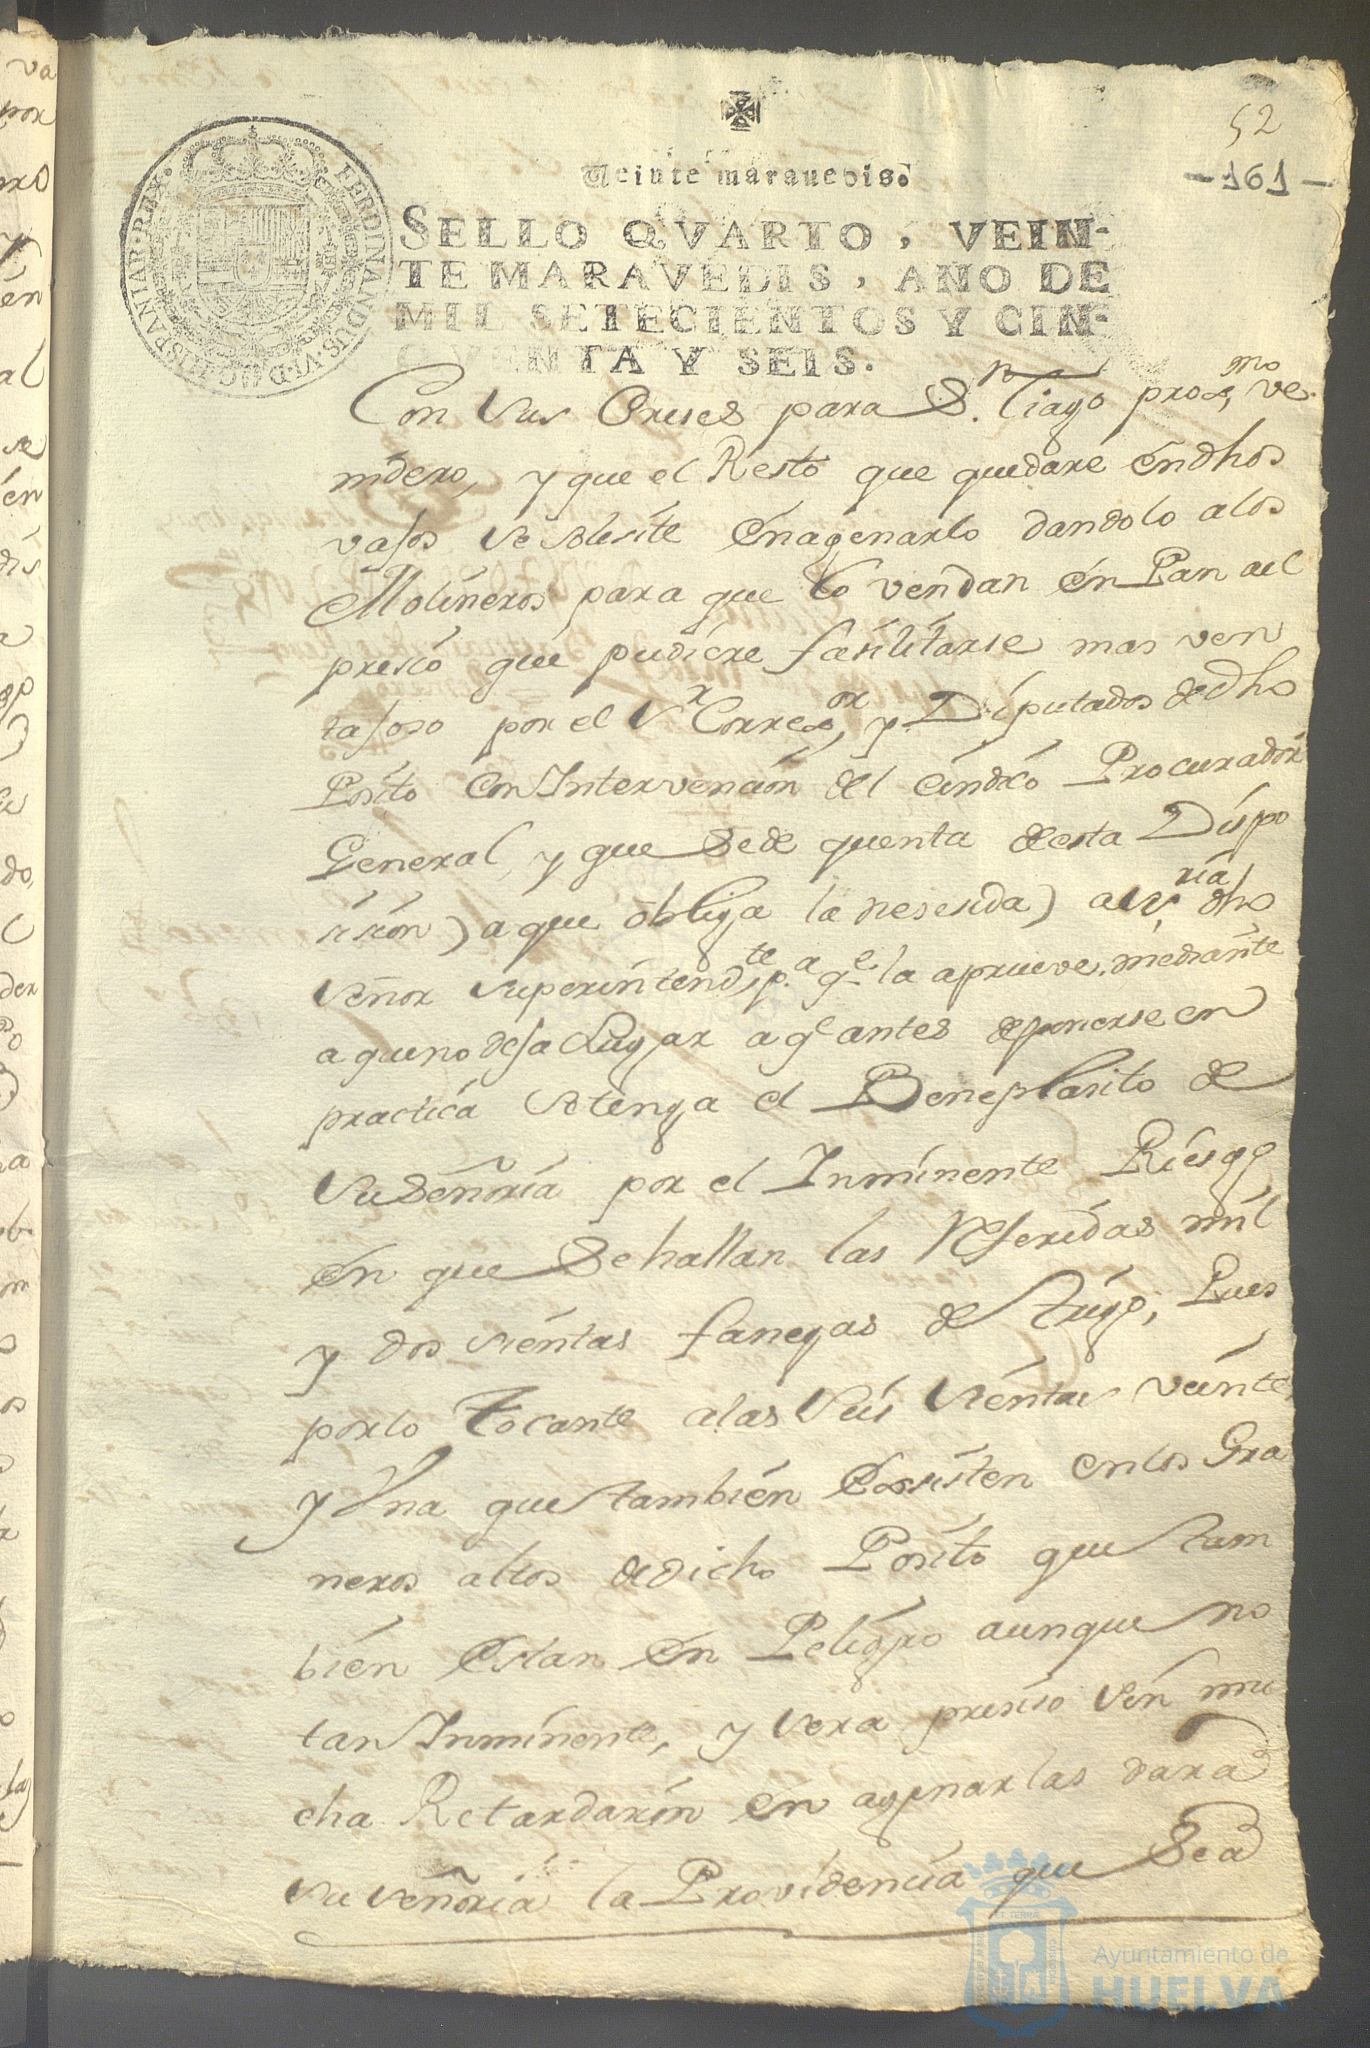 52
-161-
Veinte marauedis.
FERDINANDUS·VI·D·G·HISPANIAR·REX·
SELLO QVARTO, VEIN-
TE MARAVEDIS, AÑO DE
MIL SETECIENTOS Y CIN-
CVENTA Y SEIS.
Con sus Creses para Sn. Tiago proxmo, ve-
nidero, y que el Resto que quedare én dhos
vasos se solisite énagenarlo dandolo alos
Molineros para que lo vendan én Pan ael
presio que pudiere fasilitarse mas ven
tajoso por el Sr Corregor, y Diputados de dho
Posito con Intervension del Cindico Procurador
General, y que se de quenta de esta Dispo
sision) a que obliga la nesesida) al Sria dho
Señor Superintendte, pa. qe la aprueve, mediante
a que no deja Lugar a qe antes de ponerse en
practica obtenga el Beneplasito de
su Señoria por el Inminente Riesgo
én que se hallan las Referidas mil
y dos sientas fanegas de trigo, Pues
por lo Tocante alas seis sientas veinte
y Una que también Exsisten en los Gra
neros altos de dicho Posito que tam
bién éstan én Peligro aunque no
tan Inminente, y sera presiso sin mu
cha Retardasion én agenarlas dara
su señoria la Providencia que Sea
Ayuntamiento de
HUELVA